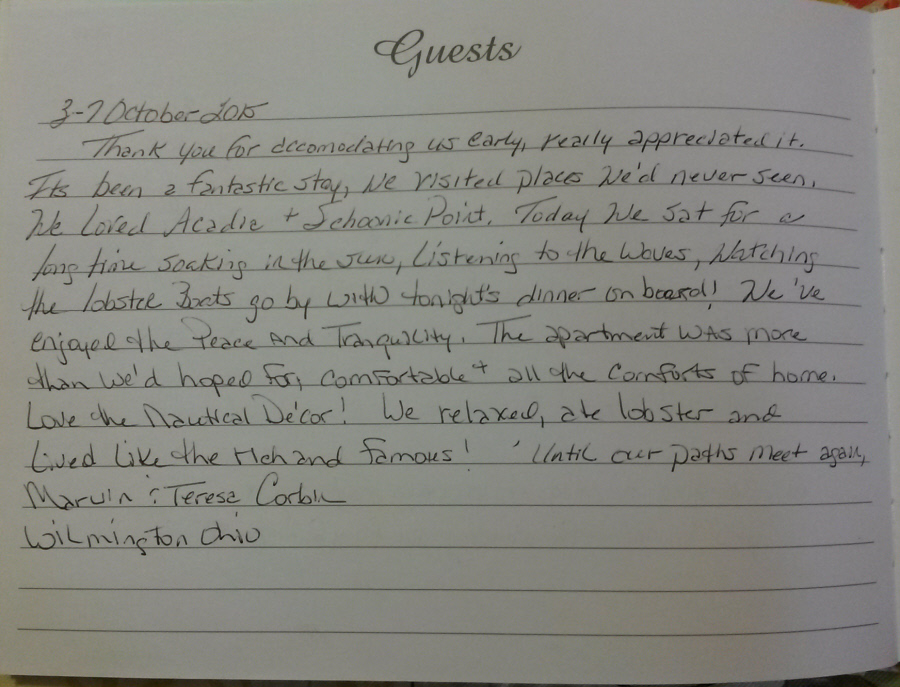 Guests
3-7 October 2015
Thank you for accomodating us early, really appreciated it.
Its been a fantastic stay, We visited places We'd never seen.
We Loved Acadia + Schoonic Point. Today We sat for a
long time soaking in the sun, Listening to the Waves, Watching
the lobster Boats go by with tonight's dinner on board! We've
enjoyed the Peace And Tranquility. The apartment was more
than we'd hoped for, comfortable + all the comforts of home.
Love the Nautical Décor! We relaxed, ate lobster and
Lived Like the rich and famous! 'Until our paths meet again,
Marvin & Teresa Corbin
Wilmington Ohio